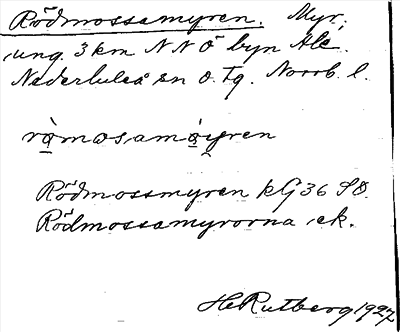 Rödmossamyren. Myr,
ung. 3 km NNÖ byn Ale.
Nederluleå sn o. Tg. Norrb. l.
rò̱mosamø̱yren
Rödmossmyren kG36 SO.
Rödmossamyrorna, ek.
HRutberg 1927